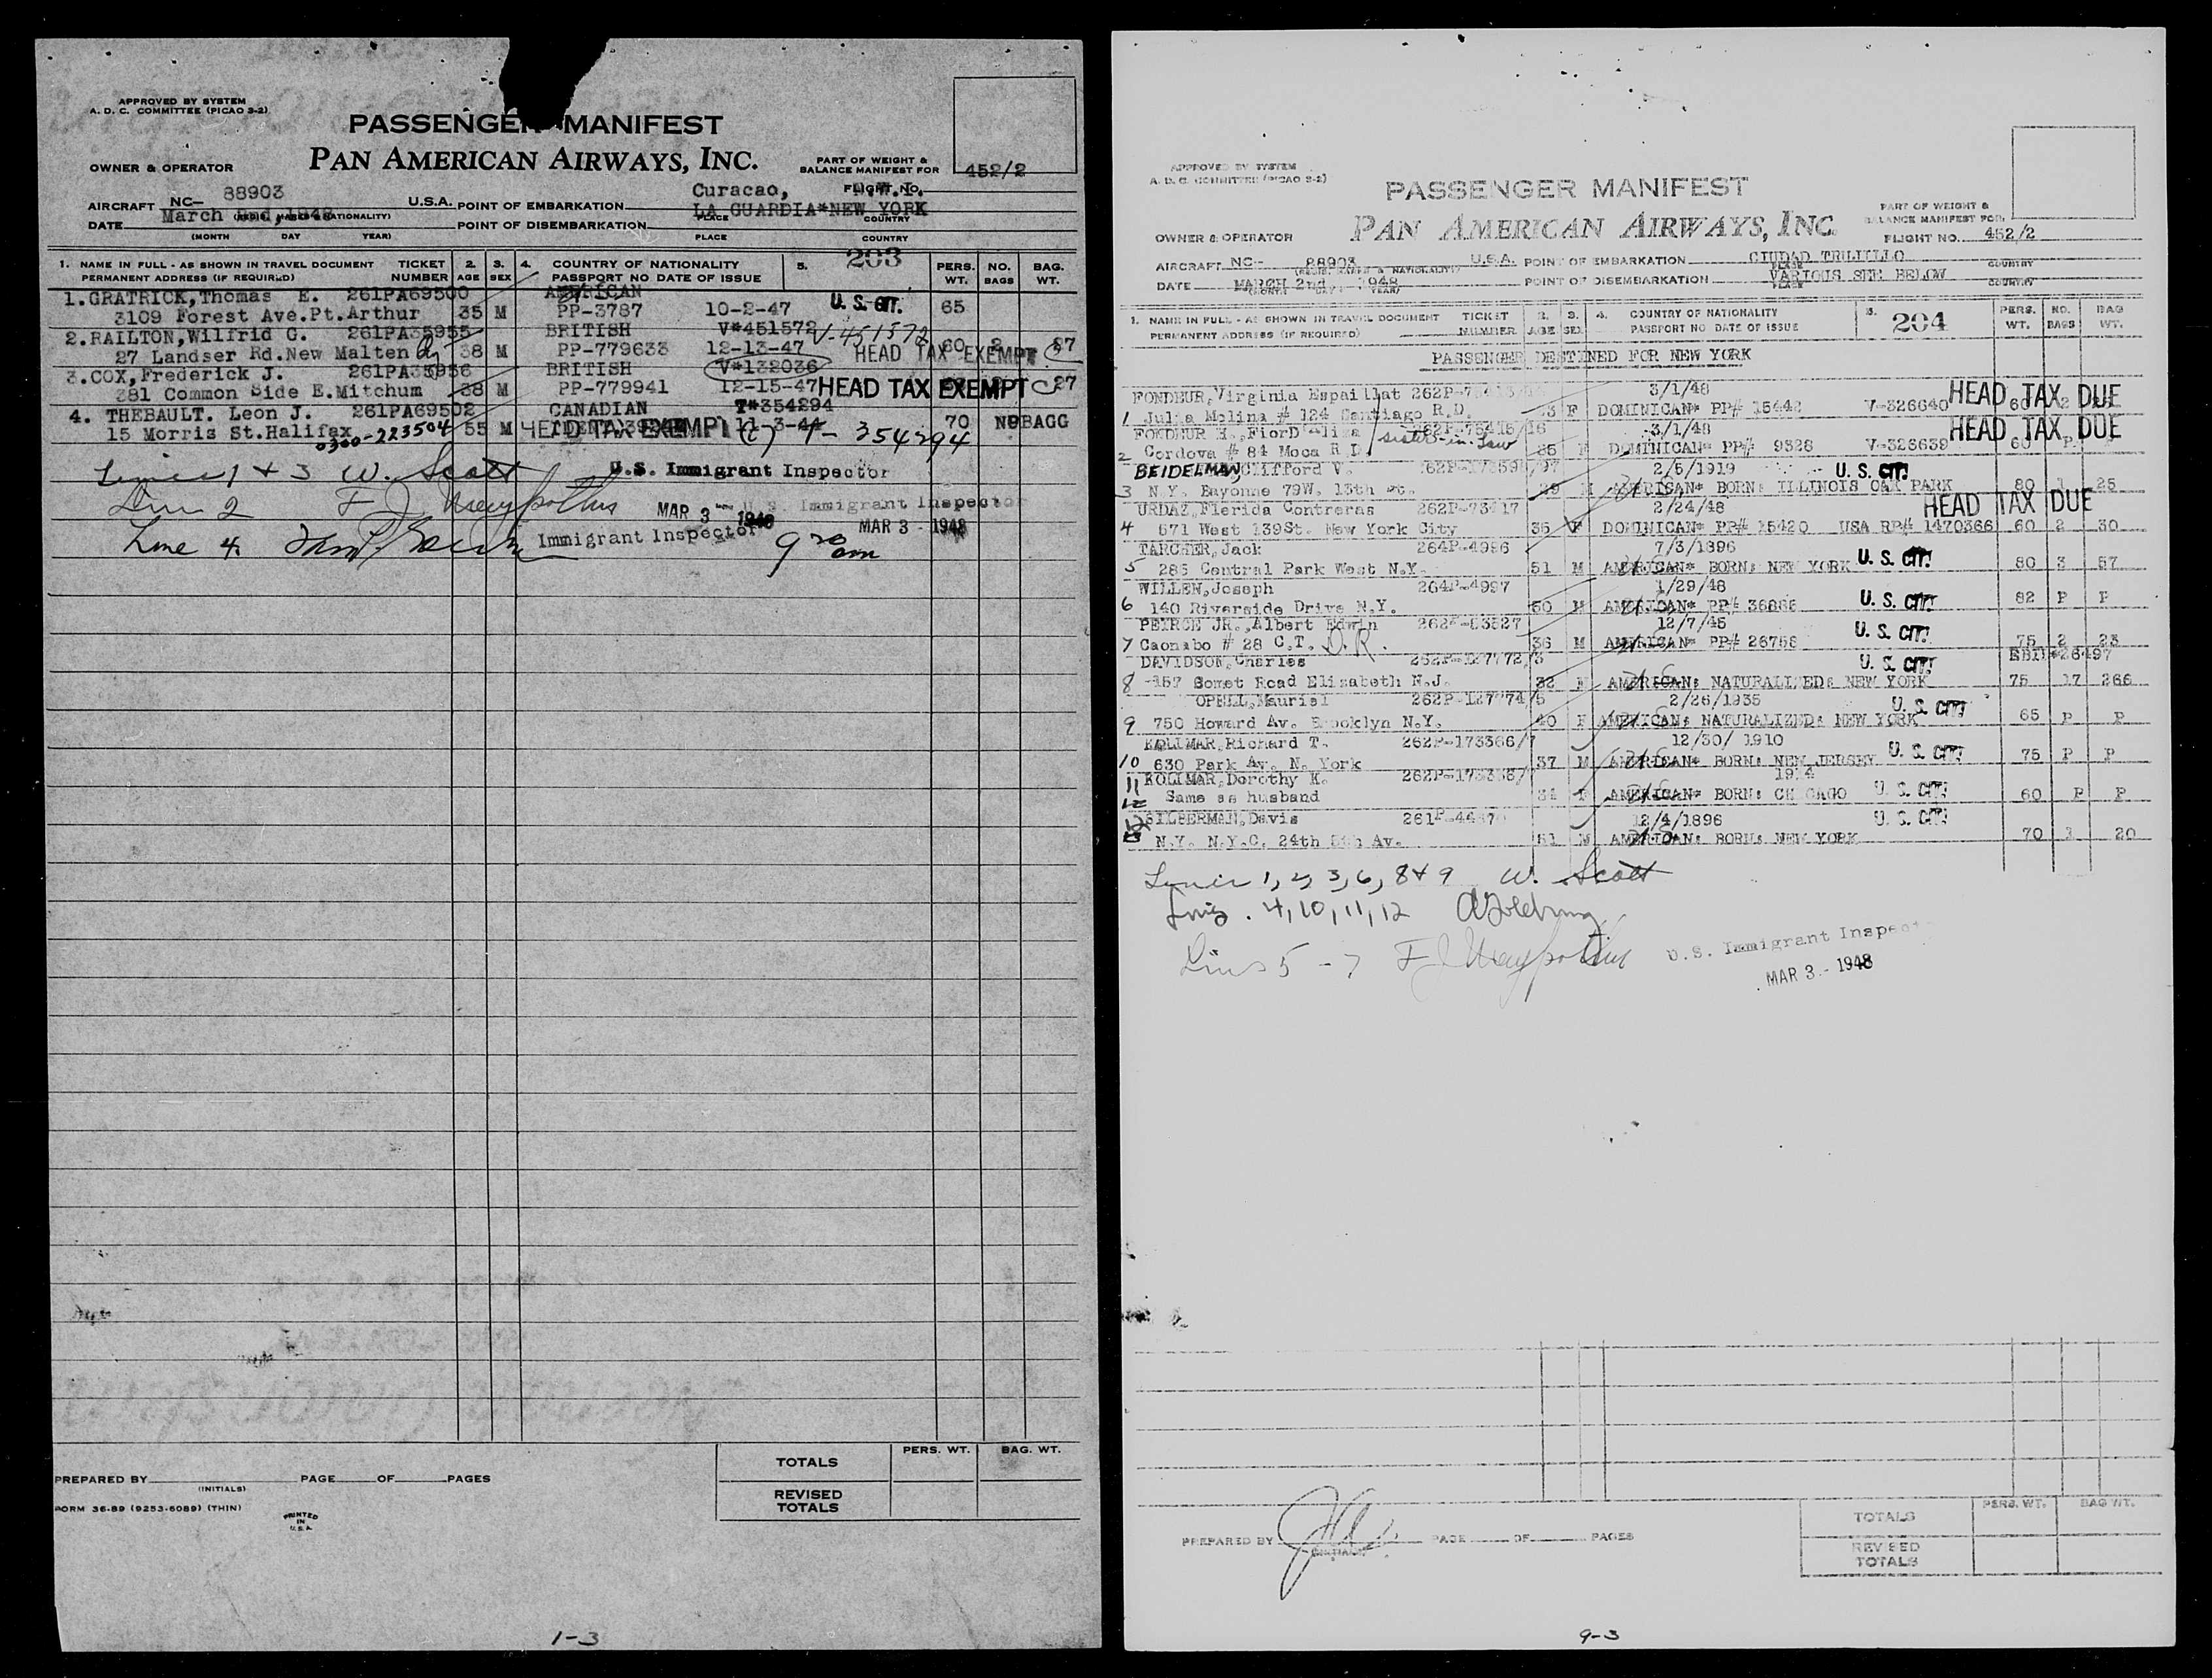 APPROVED BY SYSTEM
A. D. C. COMMITTEE (PICAO S-2)
PASSENGER MANIFEST
PAN AMERICAN AIRWAYS, INC.
OWNER & OPERATOR
PART OF WEIGHT &
BALANCE MANIFEST FOR
FLIGHT NO. 452/2
AIRCRAFT NC- 88903 U.S.A. POINT OF EMBARKATION Curacao,
DATE March 2nd, 1948 POINT OF DISEMBARKATION LA GUARDIA*NEW YORK
(MONTH DAY YEAR) PLACE COUNTRY
203
1. NAME IN FULL - AS SHOWN IN TRAVEL DOCUMENT TICKET 2. 3. 4. COUNTRY OF NATIONALITY 5. PERS. NO. BAG.
PERMANENT ADDRESS (IF REQUIRED) NUMBER AGE SEX PASSPORT NO DATE OF ISSUE WT. BAGS WT.
1. GRATRICK, Thomas E. 261PA69500 AMERICAN
3109 Forest Ave. Pt. Arthur 35 M PP-3787 10-2-47 U.S. CIT. 65
2. RAILTON, Wilfrid G. 261PA35955 BRITISH V*451572 V-451572
27 Landser Rd. New Malten 38 M PP-779633 12-13-47 HEAD TAX EXEMPT 60 2 87
3. COX, Frederick J. 261PA35956 BRITISH V*132036
281 Common Side E. Mitchum 38 M PP-779941 12-15-47 HEAD TAX EXEMPT 27
4. THEBAULT. Leon J. 261PA69502 CANADIAN T*354294
15 Morris St. Halifax 55 M HEAD TAX EXEMPT (c) T-354294 70 NO BAGG
0300-223504
Lines 1 + 3 W. Scott U.S. Immigrant Inspector
Line 2 MAR 3 - 1948 U.S. Immigrant Inspector
MAR 3 - 1948
Line 4 Immigrant Inspector 9 30 am
PREPARED BY PAGE OF PAGES
(INITIALS)
FORM 36-89 (9253-6089) (THIN)
PRINTED
IN
U.S.A.
PERS. WT. BAG. WT.
TOTALS
REVISED
TOTALS
1-3
APPROVED BY SYSTEM
A. D. C. COMMITTEE (PICAO S-2)
PASSENGER MANIFEST
PAN AMERICAN AIRWAYS, INC.
OWNER & OPERATOR
PART OF WEIGHT &
BALANCE MANIFEST FOR
FLIGHT NO. 452/2
AIRCRAFT NC- 88903 U.S.A. POINT OF EMBARKATION CIUDAD TRUJILLO
DATE MARCH 2nd 1948 POINT OF DISEMBARKATION VARIOUS SEE BELOW
1. NAME IN FULL - AS SHOWN IN TRAVEL DOCUMENT TICKET 2. 3. 4. COUNTRY OF NATIONALITY 5. 204 PERS. NO. BAG
PERMANENT ADDRESS (IF REQUIRED) NUMBER AGE SEX PASSPORT NO DATE OF ISSUE WT. BAGS WT.
PASSENGER DESTINED FOR NEW YORK
FONDEUR, Virginia Espaillat 3/1/48 HEAD TAX DUE
1 Julia Molina # 124 Santiago R.D. F DOMINICAN* PP# 15442 V-326640 60 2
FONDEUR H., FiorD'Aliza sister-in-law 3/1/48 HEAD TAX DUE
2 Cordova # 84 Moca R.D. F DOMINICAN* PP# 9328 V-326639 60 P
BEIDELMAN, Clifford V. 2/5/1919 U. S. CIT.
3 N.Y. Bayonne 79W. 13th St. 29 M AMERICAN* BORN: ILLINOIS OAK PARK 80 1 25
URDAZ, Flerida Contreras 2/24/48 HEAD TAX DUE
4 671 West 139St. New York City 35 F DOMINICAN* PP# 15420 USA RP# 1470366 60 2 30
TARCHER, Jack 264P-4996 7/3/1896
5 285 Central Park West N.Y. 51 M AMERICAN* BORN: NEW YORK U. S. CIT. 80 3 57
WILLEN, Joseph 264P-4997 1/29/48
6 140 Riverside Drive N.Y. 50 M AMERICAN* PP# U. S. CIT. 82 P P
PEIRCE JR., Albert Edwin 262P-83527 12/7/45
7 Caonabo # 28 C.T. D.R. 36 M AMERICAN* PP# 26758 U. S. CIT. 75 2 23
DAVIDSON, Charles 262P-127772/3 U. S. CIT. EBT#26497
8 157 Somet Road Elizabeth N.J. 32 M AMERICAN: NATURALIZED: NEW YORK 75 17 266
OPELL, Mauriel 262P-127774/5 2/26/1935 U. S. CIT.
9 750 Howard Av. Brooklyn N.Y. 40 F AMERICAN: NATURALIZED: NEW YORK 65 P P
KOLLMAR, Richard T. 262P-173366/7 12/30/1910
10 630 Park Av. N. York 37 M AMERICAN* BORN: NEW JERSEY U. S. CIT. 75 P P
KOLLMAR, Dorothy K. 1914
11 Same as husband 34 F AMERICAN* BORN: CHICAGO U. S. CIT. 60 P P
12 SILBERMAN, Davis 12/4/1896 U. S. CIT.
N.Y. N.Y.C. 24th 5th Av. 51 M AMERICAN: BORN: NEW YORK 70 3 20
Lines 1, 2, 3, 6, 8 + 9 W. Scott
Lines 4, 10, 11, 12
Lines 5 - 7 U.S. Immigrant Inspect
MAR 3 - 1948
PREPARED BY PAGE OF PAGES
(INITIALS)
PERS. WT. BAG WT.
TOTALS
REVISED
TOTALS
9-3